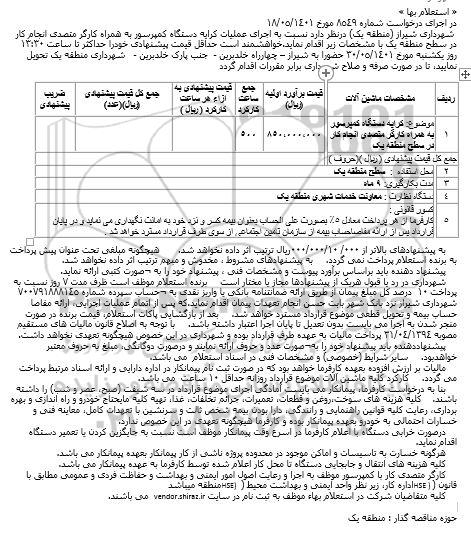 « استعلام بها »
در اجرای درخواست شماره ۸۵۴۹ مورخ ۱۸/۰۵/۱۴۰۱
شهرداری شیراز (منطقه یک) درنظر دارد نسبت به اجرای عملیات کرایه دستگاه کمپرسور به همراه کارگر متصدی انجام کار
در سطح منطقه یک با مشخصات زیر اقدام نماید،خواهشمند است حداقل قیمت پیشنهادی خودرا حداکثر تا ساعت ۱۳:۳۰
روز یکشنبه مورخ ۳۰/۰۵/۱۴۰۱ حضورا به شیراز – چهارراه خلدبرین - جنب پارک خلدبرین - شهرداری منطقه یک تحویل
نمایید، تا در صورت صرفه و صلاح شهرداری برابر مقررات اقدام گردد
ردیف مشخصات ماشین آلات قیمت برآورد اولیه (ریال) جمع ساعت کارکرد قیمت پیشنهادی به ازاء هر ساعت کارکرد (ریال) جمع کل قیمت پیشنهادی (ریال)(عدد) ضریب پیشنهادی
۱ موضوع: کرایه دستگاه کمپرسور به همراه کارگر متصدی انجام کار در سطح منطقه یک ۸۵۰،۰۰۰،۰۰۰ ۵۰۰
جمع کل قیمت پیشنهادی (ریال )(حروف )
۲ محل استفاده : سطح منطقه یک
۳ مدت بکارگیری: ۹ ماه
۴ دستگاه نظارت : معاونت خدمات شهری منطقه یک
۵ کسور قانونی :
کارفرما از هر پرداخت معادل ۵٪ بصورت علی الحساب بعنوان بیمه کسر و نزد خود به امانت نگهداری می نماید و در پایان
قرارداد پس از ارائه مفاصاحساب بیمه از سازمان تامین اجتماعی از سوی طرف قرارداد مسترد خواهد شد .
به پیشنهادهای بالاتر از ۱۰/۰۰۰/۰۰۰/۰۰۰ریال ترتیب اثر داده نخواهد شد. هیچگونه مبلغی تحت عنوان پیش پرداخت
به برنده استعلام پرداخت نمی گردد. به پیشنهادهای مشروط ، مخدوش و مبهم ترتیب اثر داده نخواهد شد.
پیشنهاد دهنده باید براساس برآورد پیوست و مشخصات فنی ، پیشنهاد خود را به صورت کتبی ارائه نماید.
شهرداری در رد یا قبول هریک از پیشنهادها مجاز یا مختار است برنده استعلام موظف است ظرف مدت ۷ روز نسبت به
پرداخت ۱۰ درصد کل مبلغ پیمان از طریق ارائه ضمانتنامه بانکی یا واریز نقدی به حساب سپرده شماره
شهرداری شیراز نزد بانک شهر بابت حسن انجام تعهدات پیمان اقدام نماید،که پس از اتمام عملیات اجرایی، ارائه مفاصا
حساب بیمه و تحویل قطعی موضوع قرارداد مسترد خواهد شد. بعد از بازگشایی پاکات استعلام، قیمت برنده در صورت
منجر شدن به اجرا می بایست بدون تعدیل تا پایان اجرا اعتبار داشته باشد. با توجه به اصلاح قانون مالیات های مستقیم
مصوبه ۳۱/۰۴/۱۳۹۴ پرداخت مالیات به عهده طرف قرارداد بوده و شهرداری در این خصوص هیچگونه تعهدی نخواهد داشت.
پیشنهاددهنده باید پیشنهاد خود را به صورت عدد و حروف ارائه نمایند و درصورت دوگانگی، مبلغ به حروف معتبر
خواهدبود. سایر شرایط (خصوصی) و مشخصات فنی در اسناد استعلام می باشد.
مالیات بر ارزش افزوده بعهده کارفرما خواهد بود که در صورت ثبت نام پیمانکار در اداره دارایی و ارائه اسناد مرتبط پرداخت
می گردد. کارکرد کلیه ماشین آلات موضوع قرارداد روزانه حداقل ۱۰ ساعت می باشد.
بنا به درخواست کارفرما، پیمانکار می بایست آمادگی اجرای موضوع قرارداد در سه شیفت (صبح، عصر و شب) را داشته
باشد. کلیه هزینه های سوخت، روغن و قطعات، تعمیرات، جرائم تخلفات، غذا، تهیه کلیه مایحتاج خودرو و راه اندازی و بهره
برداری، رعایت کلیه قوانین راهنمایی و رانندگی، دارا بودن بیمه شخص ثالث و سرنشین با تعهدات کامل، معاینه فنی و
خسارات احتمالی به خودرو بعهده پیمانکار بوده و کارفرما هیچگونه تعهدی در این خصوص ندارد.
درصورت خرابی دستگاه با اعلام کارفرما در اسرع وقت پیمانکار موظف است نسبت به جایگزین کردن یا تعمیر دستگاه
اقدام نماید.
هرگونه خسارت به تاسیسات و اماکن موجود در محدوده پروژه ناشی از کار پیمانکار بعهده پیمانکار می باشد.
کلیه هزینه های انتقال و جابجایی دستگاه تا محل کار اعلام شده توسط کارفرما به عهده پیمانکار می باشد.
کارگر متصدی کار با کمپرسور موظف به اجرا و رعایت اصول امور ایمنی و بهداشت و حفاظت فردی و عمومی مطابق با
قانون ( HSE)اداره کار، زیر نظر واحد ایمنی و بهداشت محیط ( HSE)منطقه میباشد
کلیه متقاضیان شرکت در استعلام بهاء موظف به ثبت نام در سایت vendor.shiraz.ir می باشند.
حوزه مناقصه گذار : منطقه یک